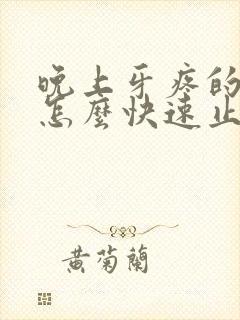 晚上牙疼的
怎麼快速止
黃菊蘭